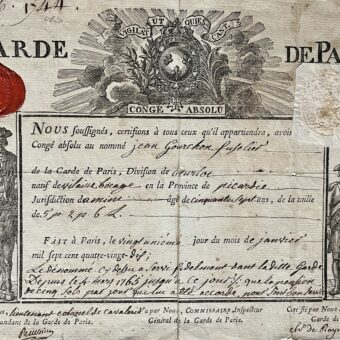 544.
VIGILAT UT QUIESCANT
GARDE DE PA
CONGÉ ABSOLU
NOUS soussignés, certifions à tous ceux qu'il appartiendra, avoi
Congé absolu au nommé jean Gourchon fusolier
de la Garde de Paris, Division de
natif de vilaine bocage en la Province de picardie
Jurisdiction damine âgé de cinquante sept ans, de la taille
de 5 p 2 p 6 L.
FAIT à Paris, le vingt unieme jour du mois de janvier
mil sept cent quatre-vingt-dix;
Le denommé cy dessu a Servi fidelment dans la ditte Garde
Depuis le 4 mars 1765 jusqu'a ce jour
de cinq sols par jour que lui a été accordé
lieutenant colonel de cavalerie
Par nous, COMMISSAIRE, Inspecteur
mandant de la Garde de Paris.
Général de la Garde de Paris.
Certifié par Nou
de la Garde de P